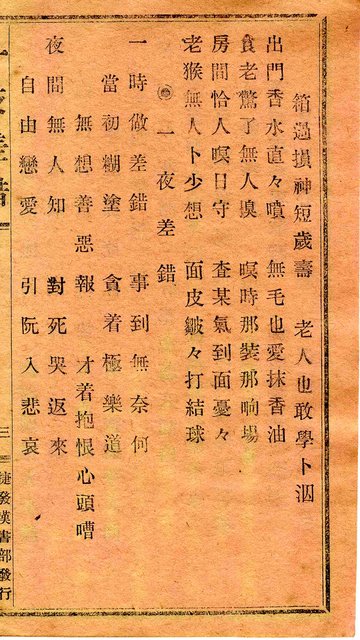 箱過損神短歲壽　老人也敢學卜泅
出門香水直々噴　無毛也愛抹香油
食老驚了無人嗅　暝時那裝那晌場
房間恰人暝日守　查某氣到面憂々
老猴無人卜少想　面皮皺々打結球
一夜差錯
一時做差錯　事到無奈何
當初糊塗　貪着極樂道
無想善惡報　才着抱恨心頭嘈
夜間無人知　對死哭返來
自由戀愛　引阮入悲哀
三　捷發漢書部發行